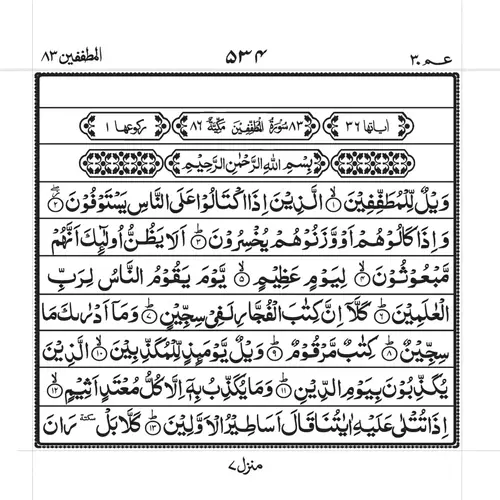 عـم ٣٠ ٥٣٤ المطففين ٨٣
اٰیاتھا ٣٦ ٨٣ سُوْرَةُ الْمُطَفِّفِيْنَ مَكِّيَّةٌ ٨٦ رکوعھا ١
بِسْمِ اللّٰهِ الرَّحْمٰنِ الرَّحِيْمِ
وَيْلٌ لِّلْمُطَفِّفِيْنَ ۙ﴿١﴾ الَّذِيْنَ اِذَا اكْتَالُوْا عَلَى النَّاسِ يَسْتَوْفُوْنَ ۖ﴿٢﴾
وَاِذَا كَالُوْهُمْ اَوْ وَّزَنُوْهُمْ يُخْسِرُوْنَ ؕ﴿٣﴾ اَلَا يَظُنُّ اُولٰٓئِكَ اَنَّهُمْ
مَّبْعُوْثُوْنَ ۙ﴿٤﴾ لِيَوْمٍ عَظِيْمٍ ۙ﴿٥﴾ يَّوْمَ يَقُوْمُ النَّاسُ لِرَبِّ
الْعٰلَمِيْنَ ؕ﴿٦﴾ كَلَّاۤ اِنَّ كِتٰبَ الْفُجَّارِ لَفِيْ سِجِّيْنٍ ؕ﴿٧﴾ وَمَاۤ اَدْرٰىكَ مَا
سِجِّيْنٌ ؕ﴿٨﴾ كِتٰبٌ مَّرْقُوْمٌ ؕ﴿٩﴾ وَيْلٌ يَّوْمَئِذٍ لِّلْمُكَذِّبِيْنَ ۙ﴿١٠﴾ الَّذِيْنَ
يُكَذِّبُوْنَ بِيَوْمِ الدِّيْنِ ؕ﴿١١﴾ وَمَا يُكَذِّبُ بِهٖۤ اِلَّا كُلُّ مُعْتَدٍ اَثِيْمٍ ۙ﴿١٢﴾
اِذَا تُتْلٰى عَلَيْهِ اٰيٰتُنَا قَالَ اَسَاطِيْرُ الْاَوَّلِيْنَ ؕ﴿١٣﴾ كَلَّا بَلْ سكتة رَانَ
منزل ٧